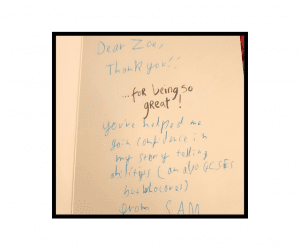 Dear Zoe,
Thank you!!
...for being so
great!
you've helped me
gain confidence in
my story telling
abilities (an also GCSEs
From: SAM